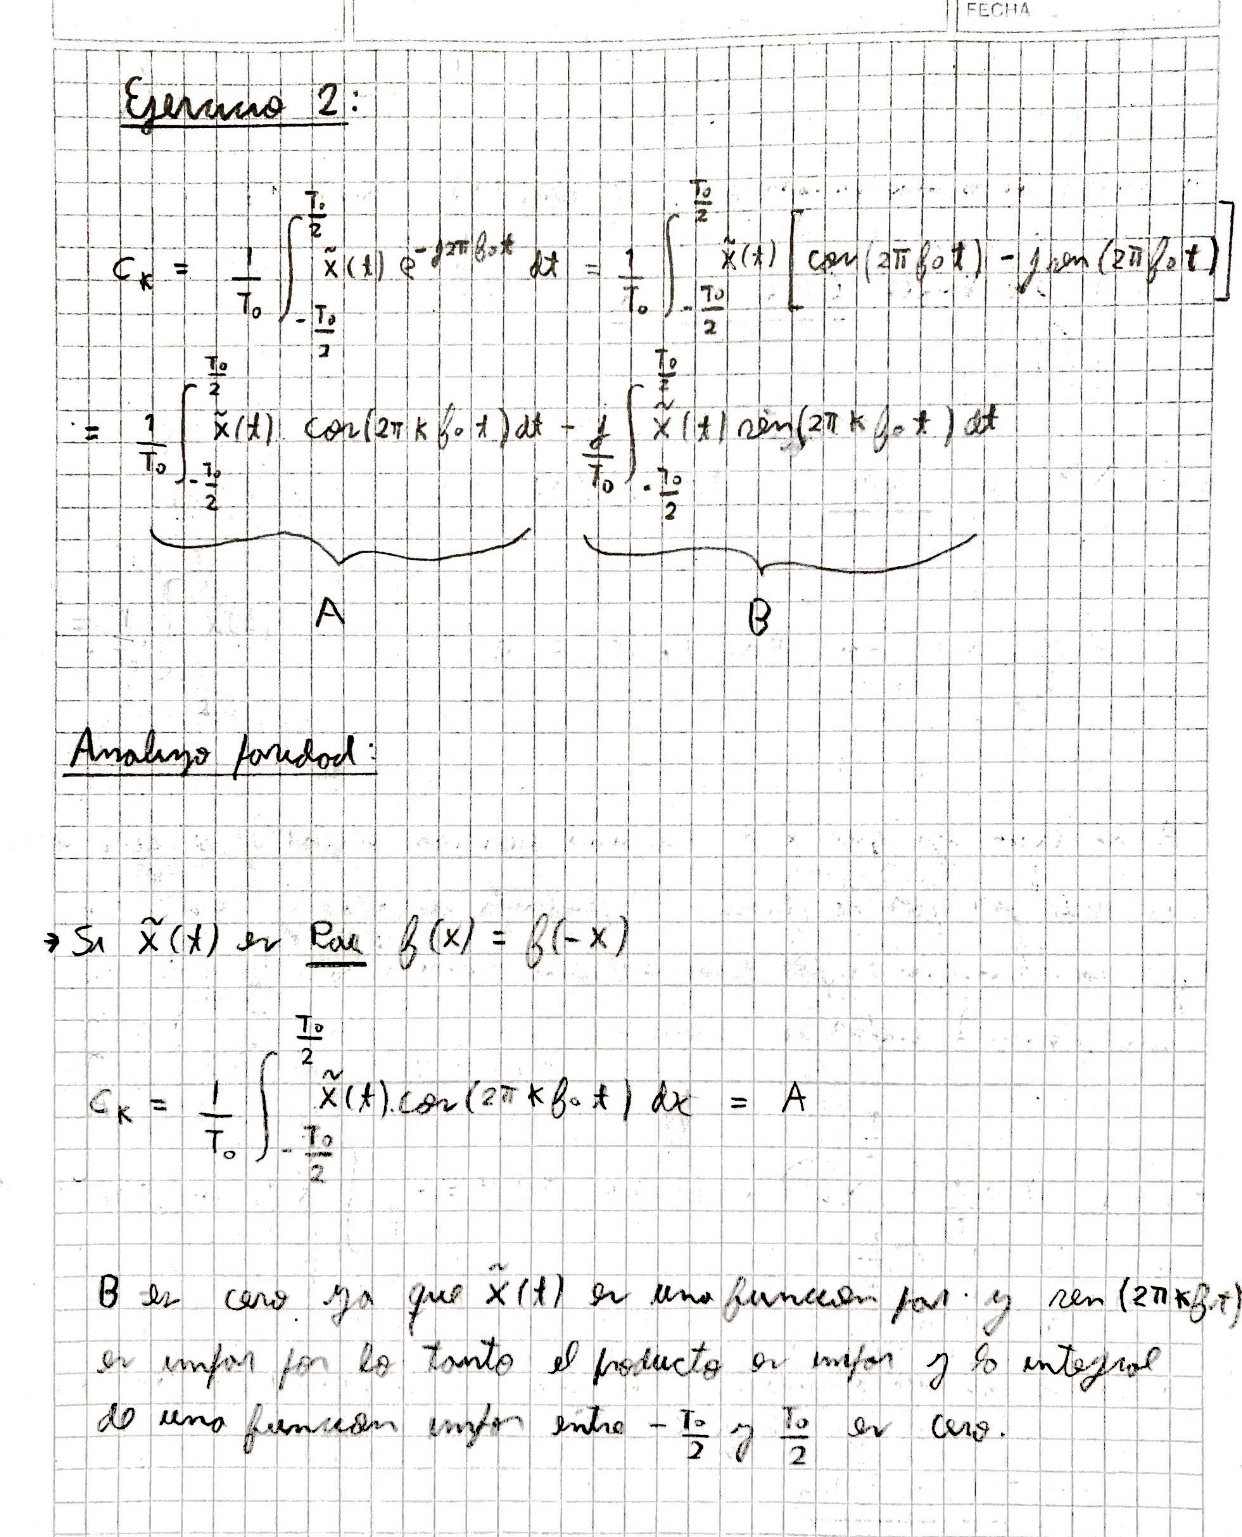 FECHA
Ejercicio 2:
c_K = 1/T₀ ∫_{-T₀/2}^{T₀/2} x̃(t) e^{-j2πf₀t} dt = 1/T₀ ∫_{-T₀/2}^{T₀/2} x̃(t) [cos(2πf₀t) - j sen(2πf₀t)]
= 1/T₀ ∫_{-T₀/2}^{T₀/2} x̃(t) cos(2πKf₀t) dt - j/T₀ ∫_{-T₀/2}^{T₀/2} x̃(t) sen(2πKf₀t) dt
A B
Analizo paridad:
→ Si x̃(t) es Par f(x) = f(-x)
c_K = 1/T₀ ∫_{-T₀/2}^{T₀/2} x̃(t).cos(2πKf₀t) dx = A
B es cero ya que x̃(t) es una función par y sen(2πKf₀t)
es impar por lo tanto el producto es impar y la integral
de una función impar entre -T₀/2 y T₀/2 es cero.